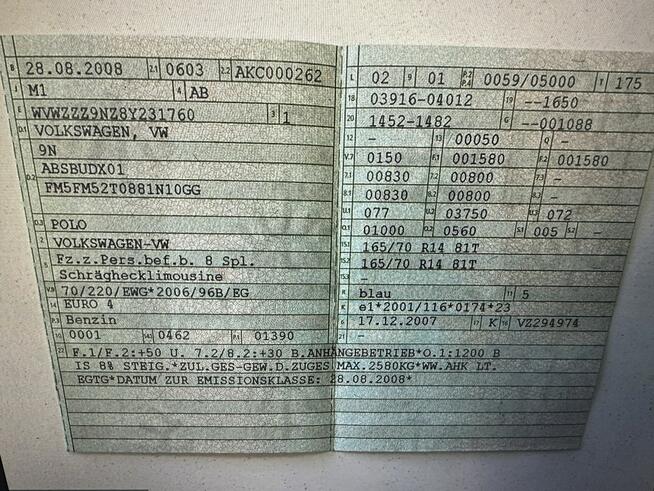 B 28.08.2008 2.1 0603 2.2 AKC000262
J M1 4 AB
E WVWZZZ9NZ8Y231760 3 1
D.1 VOLKSWAGEN, VW
9N
D.2 ABSBUDX01
FM5FM52T0881N10GG
D.3 POLO
2 VOLKSWAGEN-VW
5 Fz.z.Pers.bef.b. 8 Spl.
Schräghecklimousine
V.9 70/220/EWG*2006/96B/EG
14 EURO 4
P.3 Benzin
10 0001 14.1 0462 P.1 01390
L 02 9 01 P.2 P.4 0059/05000 T 175
18 03916-04012 19 --1650
20 1452-1482 G --001088
12 - 13 00050 Q -
V.7 0150 F.1 001580 F.2 001580
7.1 00830 7.2 00800 7.3 -
8.1 00830 8.2 00800 8.3 -
U.1 077 U.2 03750 U.3 072
O.1 01000 O.2 0560 S.1 005 S.2 -
15.1 165/70 R14 81T
15.2 165/70 R14 81T
15.3 -
R blau 11 5
K e1*2001/116*0174*23
6 17.12.2007 17 K 16 VZ294974
21 -
22 F.1/F.2:+50 U. 7.2/8.2:+30 B.ANHÄNGEBETRIEB*O.1:1200 B
IS 8% STEIG.*ZUL.GES-GEW.D.ZUGES MAX.2580KG*WW.AHK LT.
EGTG*DATUM ZUR EMISSIONSKLASSE: 28.08.2008*